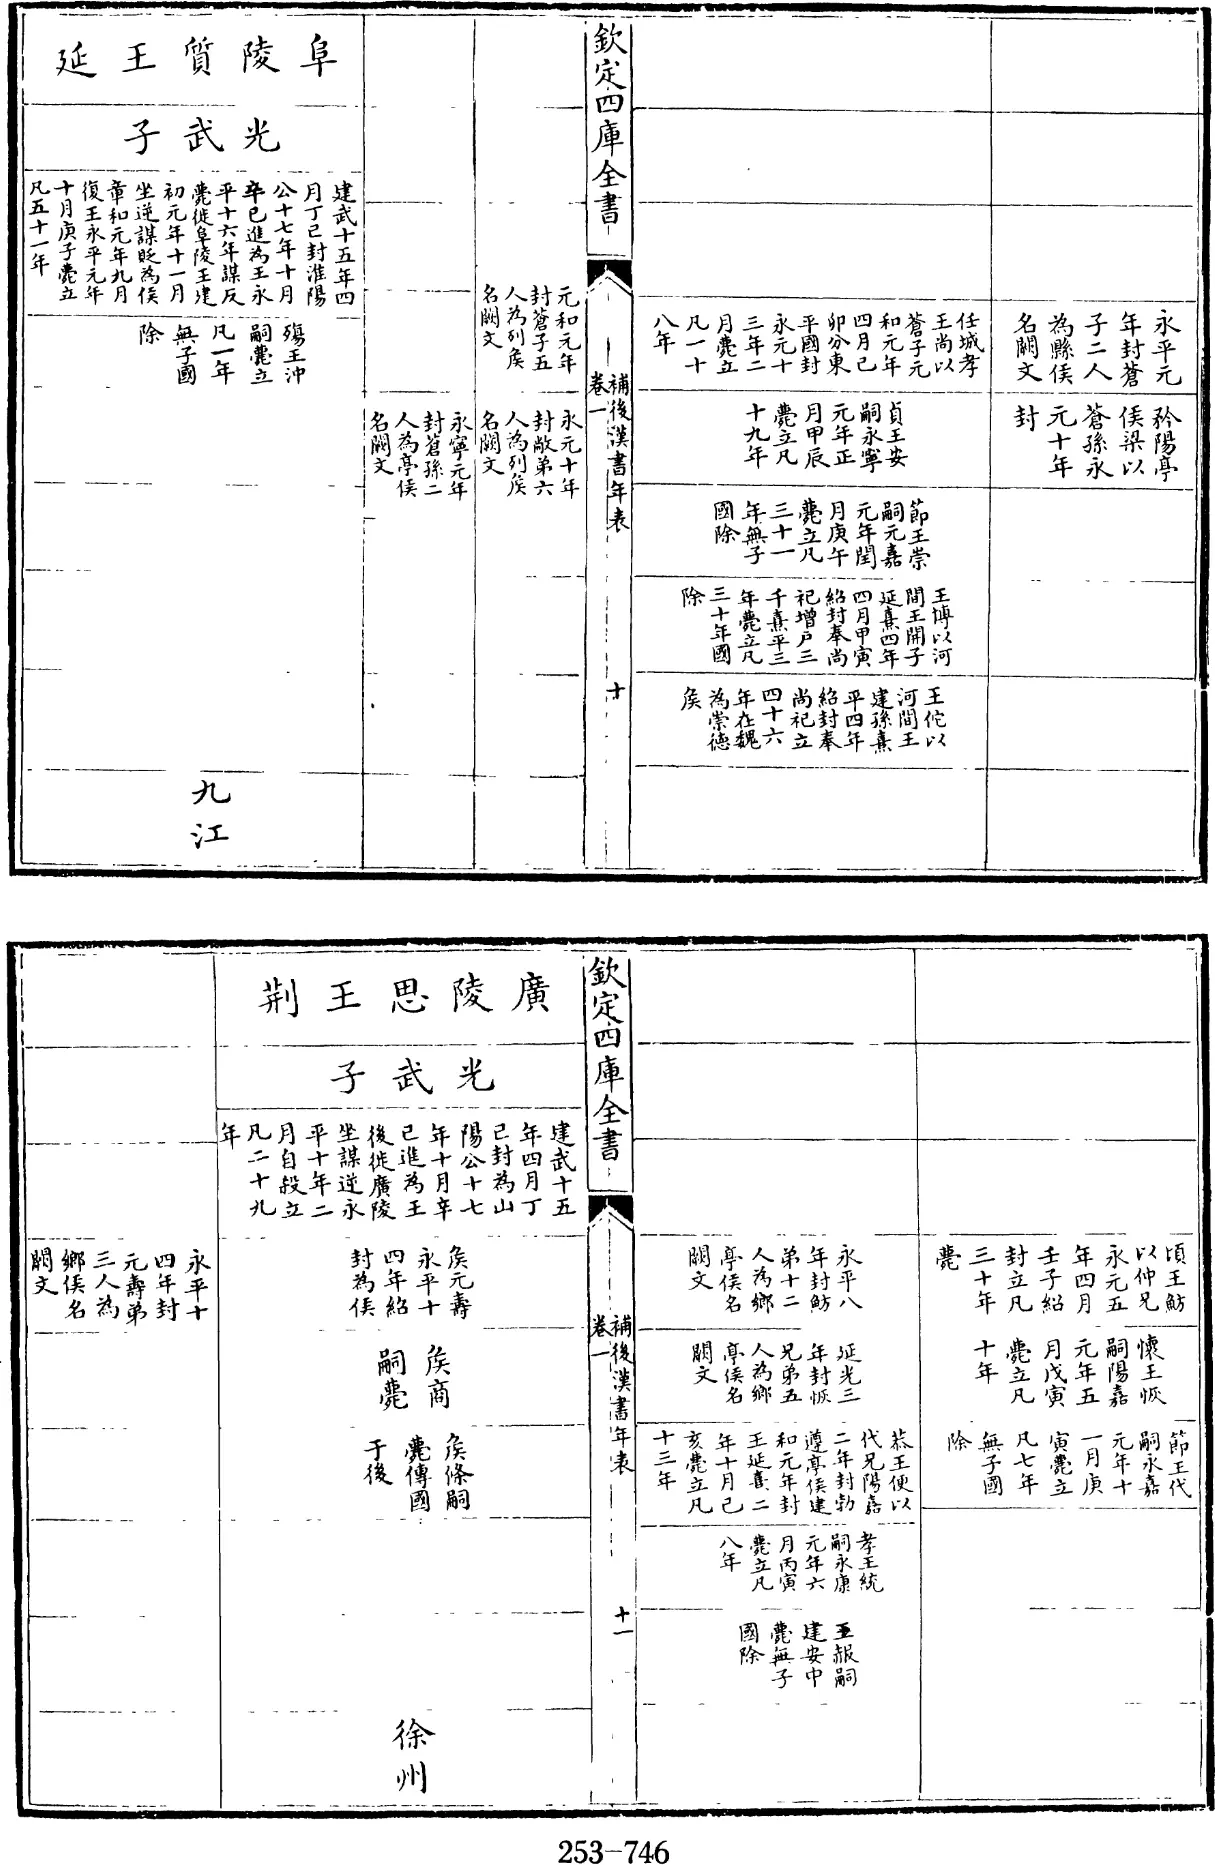 永平元
年封蒼
子二人
為縣侯
名闕文
矜陽亭
侯梁以
蒼孫永
元十年
封
任城孝
王尚以
蒼子元
和元年
四月己
卯分東
平國封
永元十
三年二
月薨立
凡一十
八年
貞王安
嗣永寧
元年正
月甲辰
薨立凡
十九年
節王崇
嗣元嘉
元年閏
月庚午
薨立凡
三十一
年無子
國除
王博以河
間王開子
延熹四年
四月甲寅
紹封奉尚
祀增户三
千熹平三
年薨立凡
三十年國
除
王佗以
河間王
建孫熹
平四年
紹封奉
尚祀立
四十六
年在魏
為崇德
侯
欽定四庫全書
補後漢書年表
卷一
十
元和元年
封蒼子五
人為列侯
名闕文
永元十年
封敞弟六
人為列侯
名闕文
永寧元年
封蒼孫二
人為亭侯
名闕文
阜陵質王延
光武子
建武十五年四
月丁已封淮陽
公十七年十月
辛已進為王永
平十六年謀反
薨徙阜陵王建
初元年十一月
坐逆謀貶為侯
章和元年九月
復王永平元年
十月庚子薨立
凡五十一年
殤王沖
嗣薨立
凡一年
無子國
除
九江
頃王魴
以仲兄
永元五
年四月
壬子紹
封立凡
三十年
薨
懷王恢
嗣陽嘉
元年五
月戊寅
薨立凡
十年
節王代
嗣永嘉
元年十
一月庚
寅薨立
凡七年
無子國
除
永平八
年封魴
弟十二
人為鄉
亭侯名
闕文
延光三
年封恢
兄弟五
人為鄉
亭侯名
闕文
恭王便以
代兄陽嘉
二年封勃
遵亭侯建
和元年封
王延熹二
年十月己
亥薨立凡
十三年
孝王統
嗣永康
元年六
月丙寅
薨立凡
八年
王赧嗣
建安中
薨無子
國除
欽定四庫全書
補後漢書年表
卷一
十一
廣陵思王荆
光武子
建武十五
年四月丁
已封為山
陽公十七
年十月辛
已進為王
後徙廣陵
坐謀逆永
平十年二
月自殺立
凡二十九
年
侯元壽
永平十
四年紹
封為侯
侯商
嗣薨
侯條嗣
薨傳國
于後
徐州
永平十
四年封
元壽弟
三人為
鄉侯名
闕文
253-746